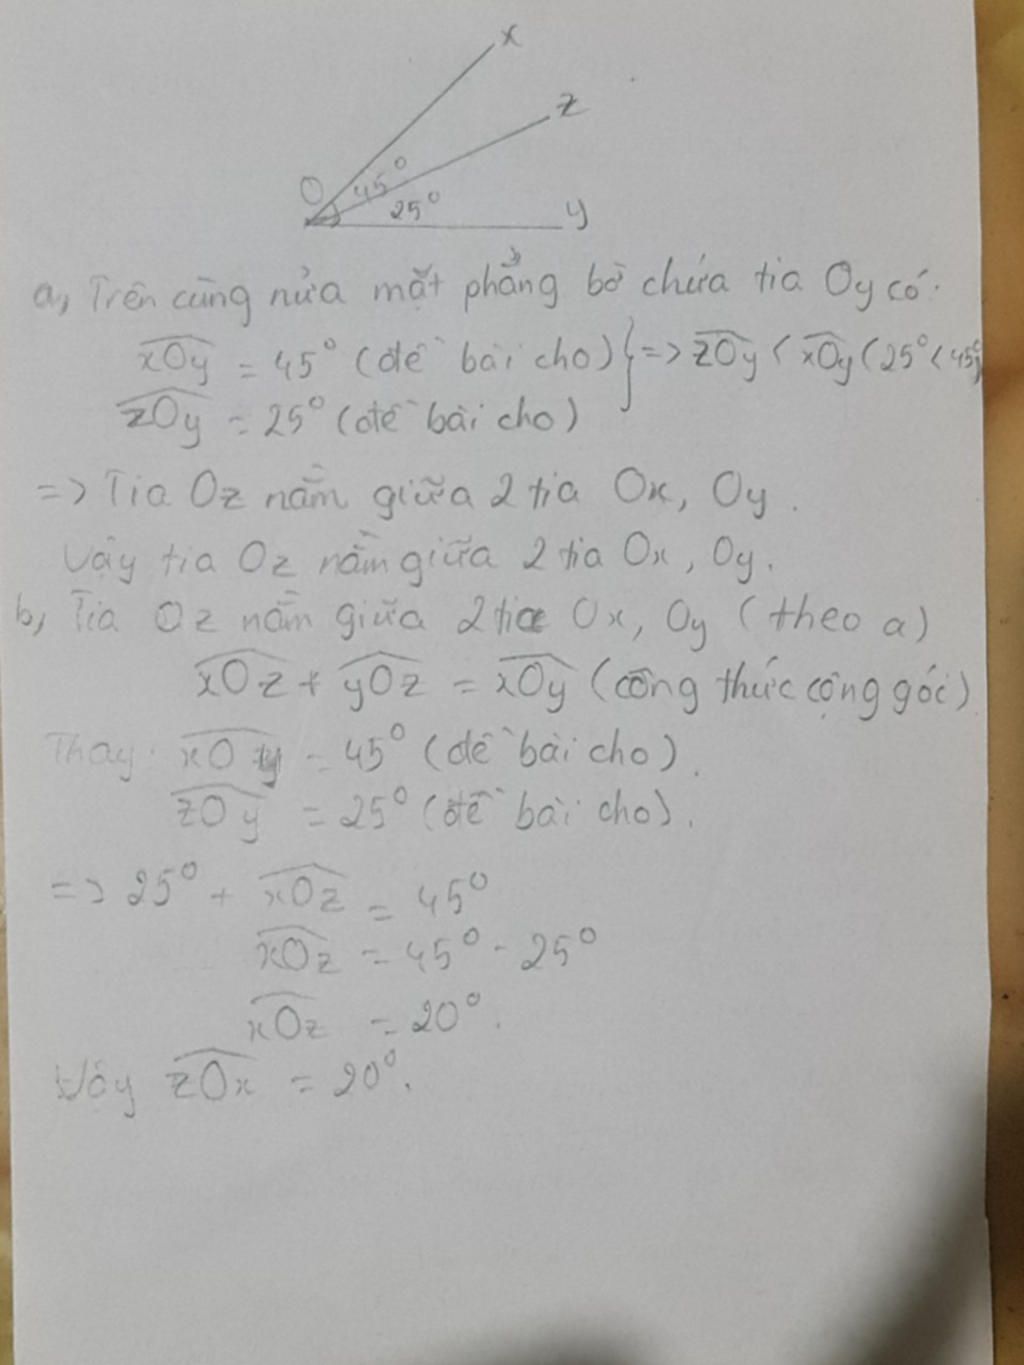 x
z
O 45°
25° y
a, Trên cùng nửa mặt phẳng bờ chứa tia Oy có:
xOy = 45° (đề bài cho) } => zOy < xOy (25° < 45°)
zOy = 25° (đề bài cho)
=> Tia Oz nằm giữa 2 tia Ox, Oy.
Vậy tia Oz nằm giữa 2 tia Ox, Oy.
b, Tia Oz nằm giữa 2 tia Ox, Oy (theo a)
xOz + yOz = xOy (công thức cộng góc)
Thay: xOy = 45° (đề bài cho).
zOy = 25° (đề bài cho).
=> 25° + xOz = 45°
xOz = 45° - 25°
xOz = 20°.
Vậy zOx = 20°.